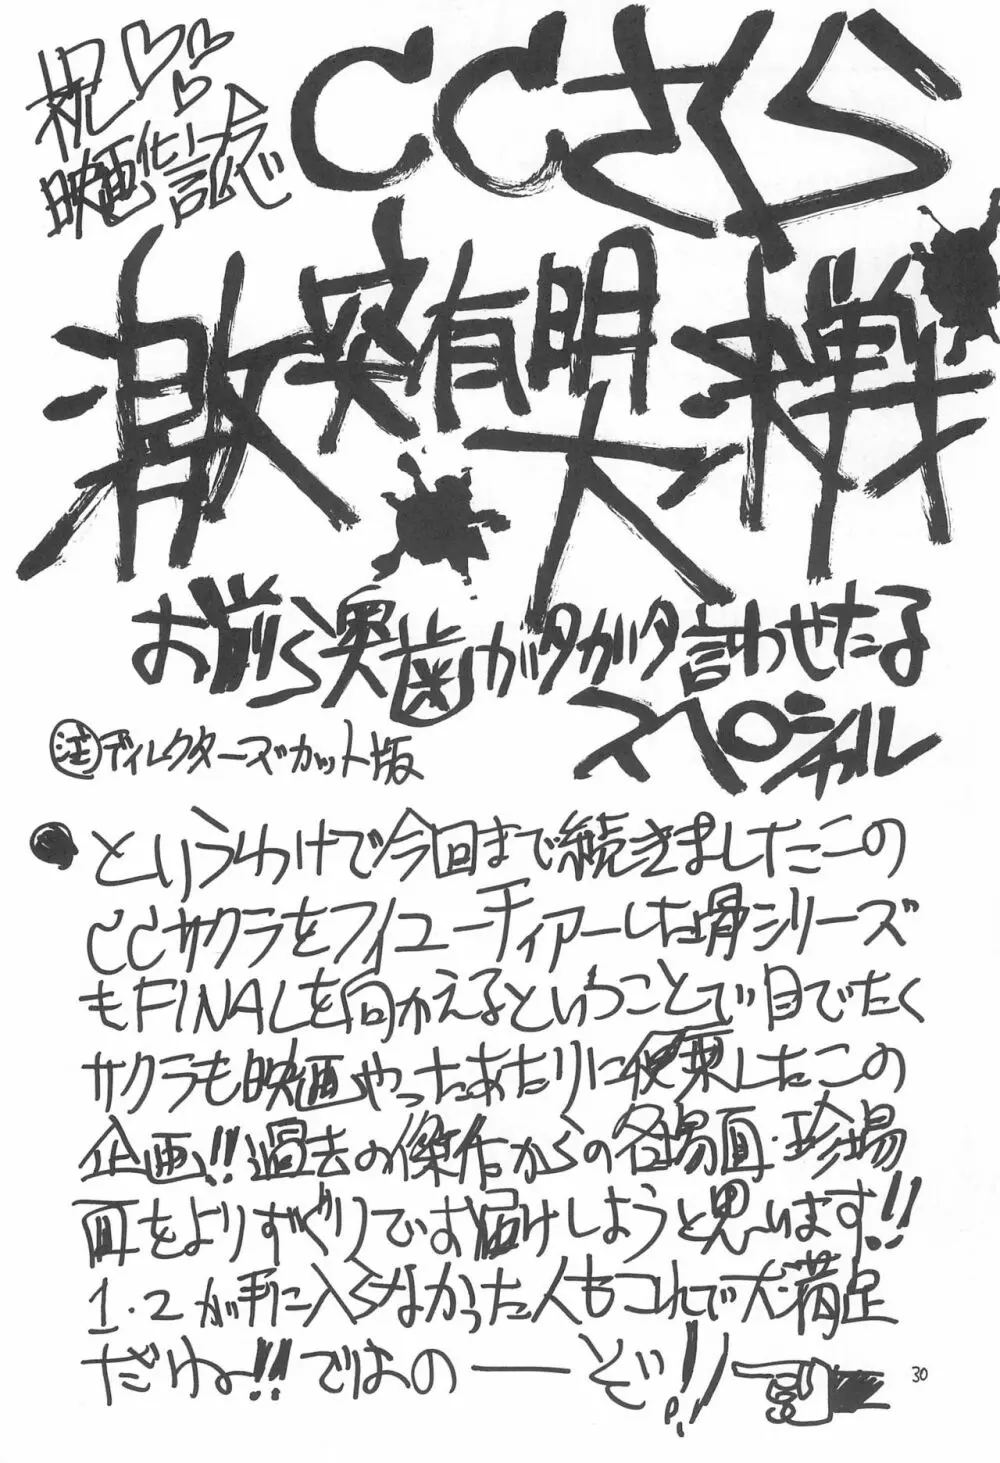 祝♡♡♡
映画化記念で
CCさくら
激突有明
大決戦
お前ら奥歯がタガタ言わせたる
スペシャル
㊟ディレクターズカット版
●というわけで今回まで続きましたこの
CCサクラをフィーチャーした骨シリーズ
もFINALを向かえるということで目でたく
サクラも映画やったあたりに便乗したこの
企画!!過去の傑作からの各場面・珍場
面をよりすぐりでお届けしようと思います!!
1・2が手に入らなかった人もコれで大満足
だわね!!ではの――ぞ!!
30